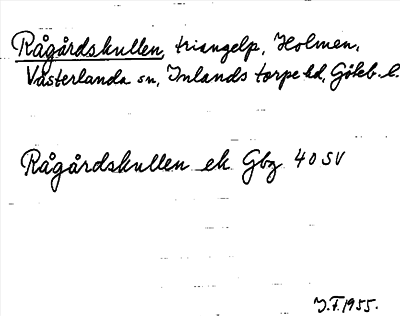 Rågårdskullen, triangelp., Holmen,
Västerlanda sn, Inlands torpe hd, Göteb. l.
Rågårdskullen ek Gbg 40 SV
J.F. 1955.